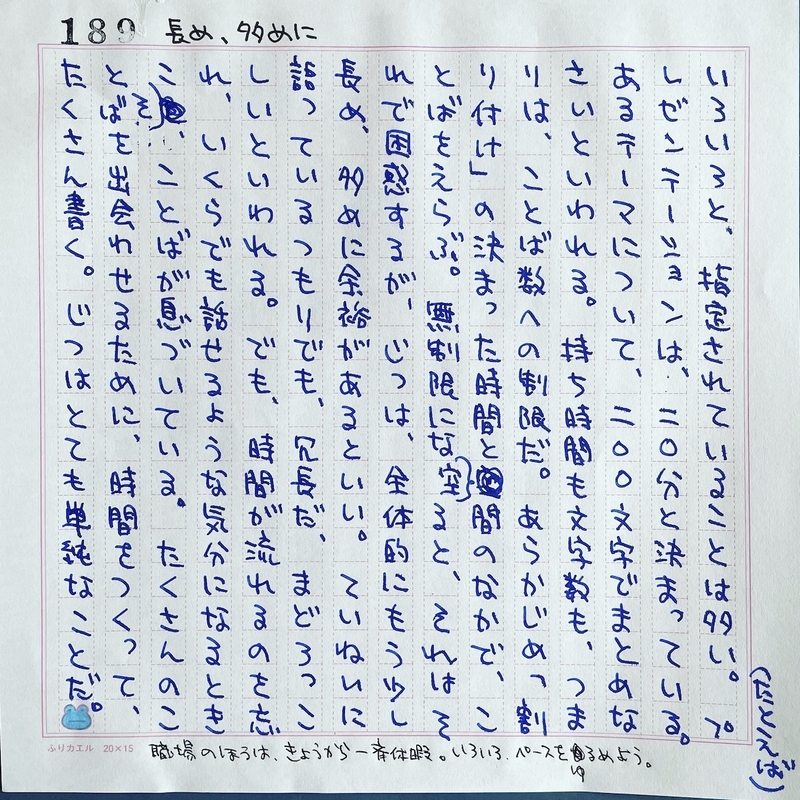 189 長め、多めに
いろいろと、指定されていることは多い。プ
(たとえば)
レゼンテーションは、二〇分と決まっている。
あるテーマについて、二〇〇文字でまとめな
さいといわれる。持ち時間も文字数も、つま
りは、ことば数への制限だ。あらかじめ「割
り付け」の決まった時間と空間のなかで、こ
とばをえらぶ。無制限になると、それはそ
れで困惑するが、じつは、全体的にもう少し
長め、多めに余裕があるといい。ていねいに
語っているつもりでも、冗長だ、まどろっこ
しいといわれる。でも、時間が流れるのを忘
れ、いくらでも話せるような気分になるとき
こそ、ことばが息づいている。たくさんのこ
とばを出会わせるために、時間をつくって、
たくさん書く。じつはとても単純なことだ。
ふりカエル 20×15
職場のほうは、きょうから一斉休暇。いろいろ、ペースをゆるめよう。